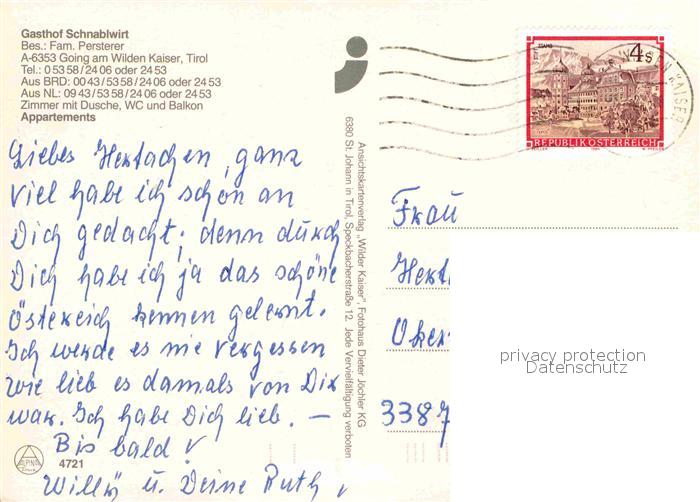 Gasthof Schnablwirt
Bes.: Fam. Persterer
A-6353 Going am Wilden Kaiser, Tirol
Tel.: 0 53 58 / 24 06 oder 24 53
Aus BRD: 00 43 / 53 58 / 24 06 oder 24 53
Aus NL: 09 43 / 53 58 / 24 06 oder 24 53
Zimmer mit Dusche, WC und Balkon
Appartements
Liebes Hertachen, ganz
viel habe ich schön an
Dich gedacht; denn durch
Dich habe ich ja das schöne
Östereich kennen gelernt.
Ich werde es nie vergessen
wie lieb es damals von Dir
war. Ich habe Dich lieb. —
Bis bald!
Willy u. Deine Ruth,
4721
Ansichtskartenverlag „Wilder Kaiser", Fotohaus Dieter Jöchler KG
6380 St. Johann in Tirol, Speckbacherstraße 12. Jede Vervielfältigung verboten
STIFT STAMS
4 S
REPUBLIK ÖSTERREICH
KAISER
Frau
Hert
Ober
3387
privacy protection
Datenschutz